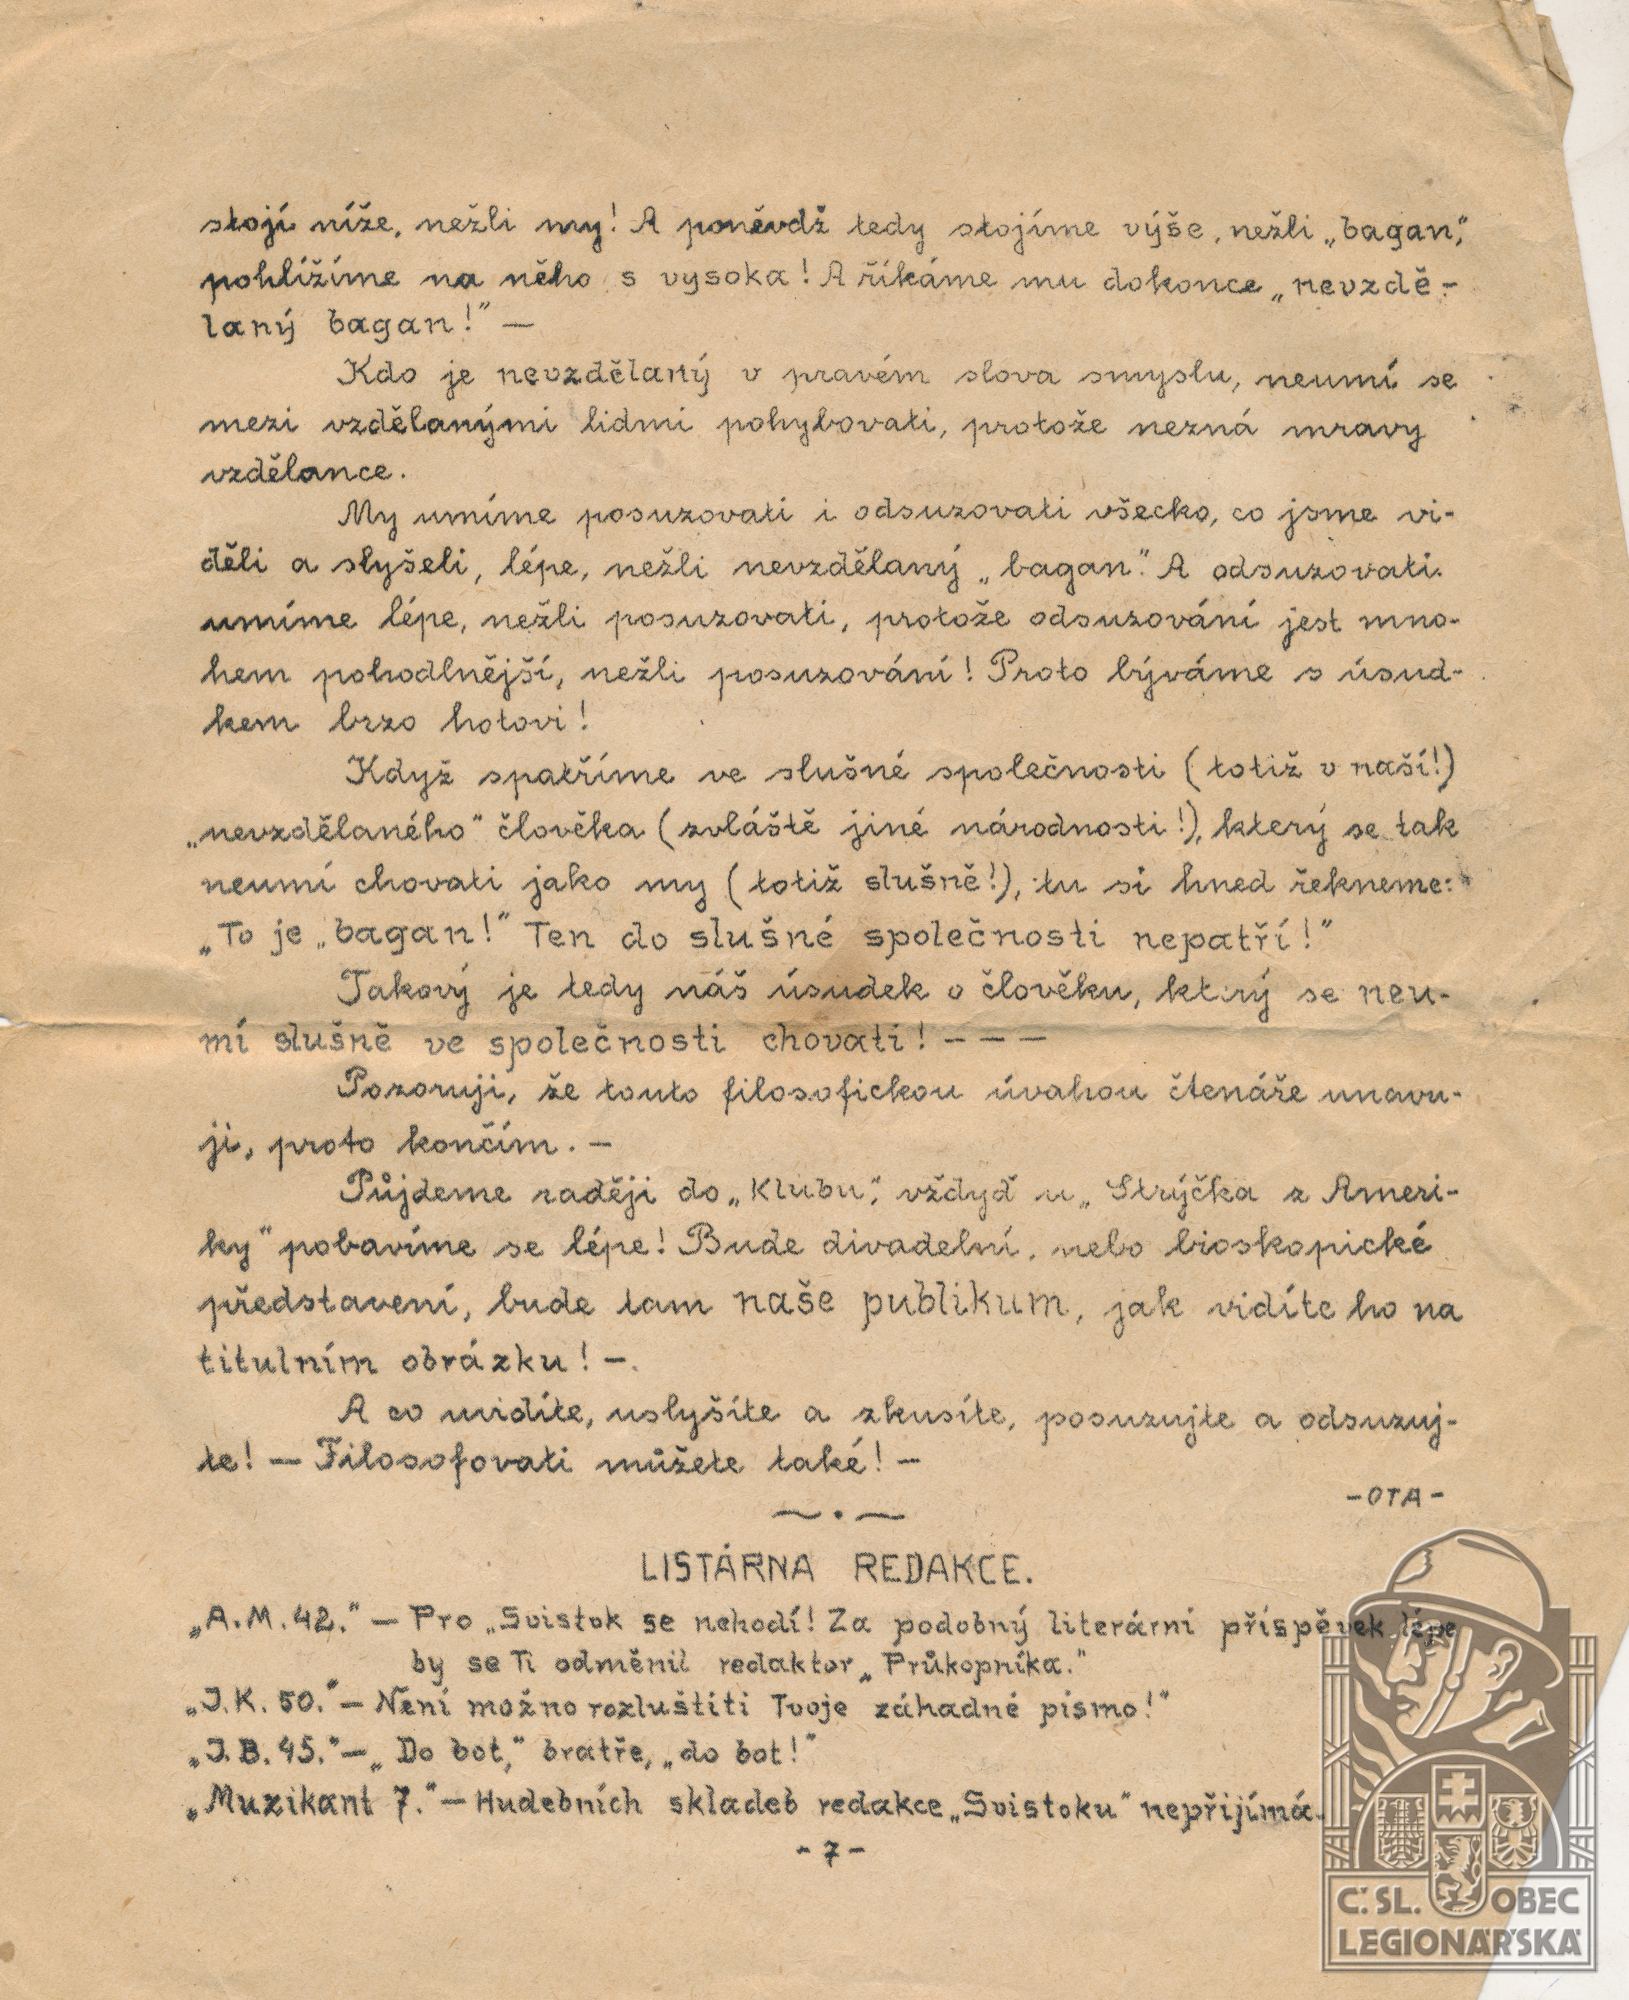 stojí níže, nežli my! A poněvdž tedy stojíme výše, nežli „bagan“,
pohlížíme na něho s vysoka! A říkáme mu dokonce „nevzdě-
laný bagan!“ —
Kdo je nevzdělaný v pravém slova smyslu, neumí se
mezi vzdělanými lidmi pohybovati, protože nezná mravy
vzdělance.
My umíme posuzovati i odsuzovati všecko, co jsme vi-
děli a slyšeli, lépe, nežli nevzdělaný „bagan“. A odsuzovati
umíme lépe, nežli posuzovati, protože odsuzování jest mno-
hem pohodlnější, nežli posuzování! Proto býváme s úsud-
kem brzo hotovi!
Když spatříme ve slušné společnosti (totiž v naší!)
„nevzdělaného“ člověka (zvláště jiné národnosti!), který se tak
neumí chovati jako my (totiž slušně!), tu si hned řekneme:
„To je „bagan!“ Ten do slušné společnosti nepatří!“
Takový je tedy náš úsudek o člověku, který se neu-
mí slušně ve společnosti chovati! — — —
Pozoruji, že touto filosofickou úvahou čtenáře unavu-
ji, proto končím. —
Půjdeme raději do „Klubu“, vždyď u „Strýčka z Ameri-
ky“ pobavíme se lépe! Bude divadelní, nebo bioskopické
představení, bude tam naše publikum, jak vidíte ho na
titulním obrázku! —.
A co uvidíte, uslyšíte a zkusíte, posuzujte a odsuzuj-
te! — Filosofovati můžete také! —
—OTA—
LISTÁRNA REDAKCE.
„A.M. 42.“ — Pro „Svistok se nehodí! Za podobný literární příspěvek lépe
by se Ti odměnil redaktor „Průkopníka.“
„J.K. 50.“ — Není možno rozluštiti Tvoje záhadné písmo!“
„J.B. 45.“ — „Do bot,“ bratře, „do bot!“
„Muzikant 7.“ — Hudebních skladeb redakce „Svistoku“ nepřijímá.
- 7 -
Č. SL. OBEC
LEGIONÁŘSKÁ